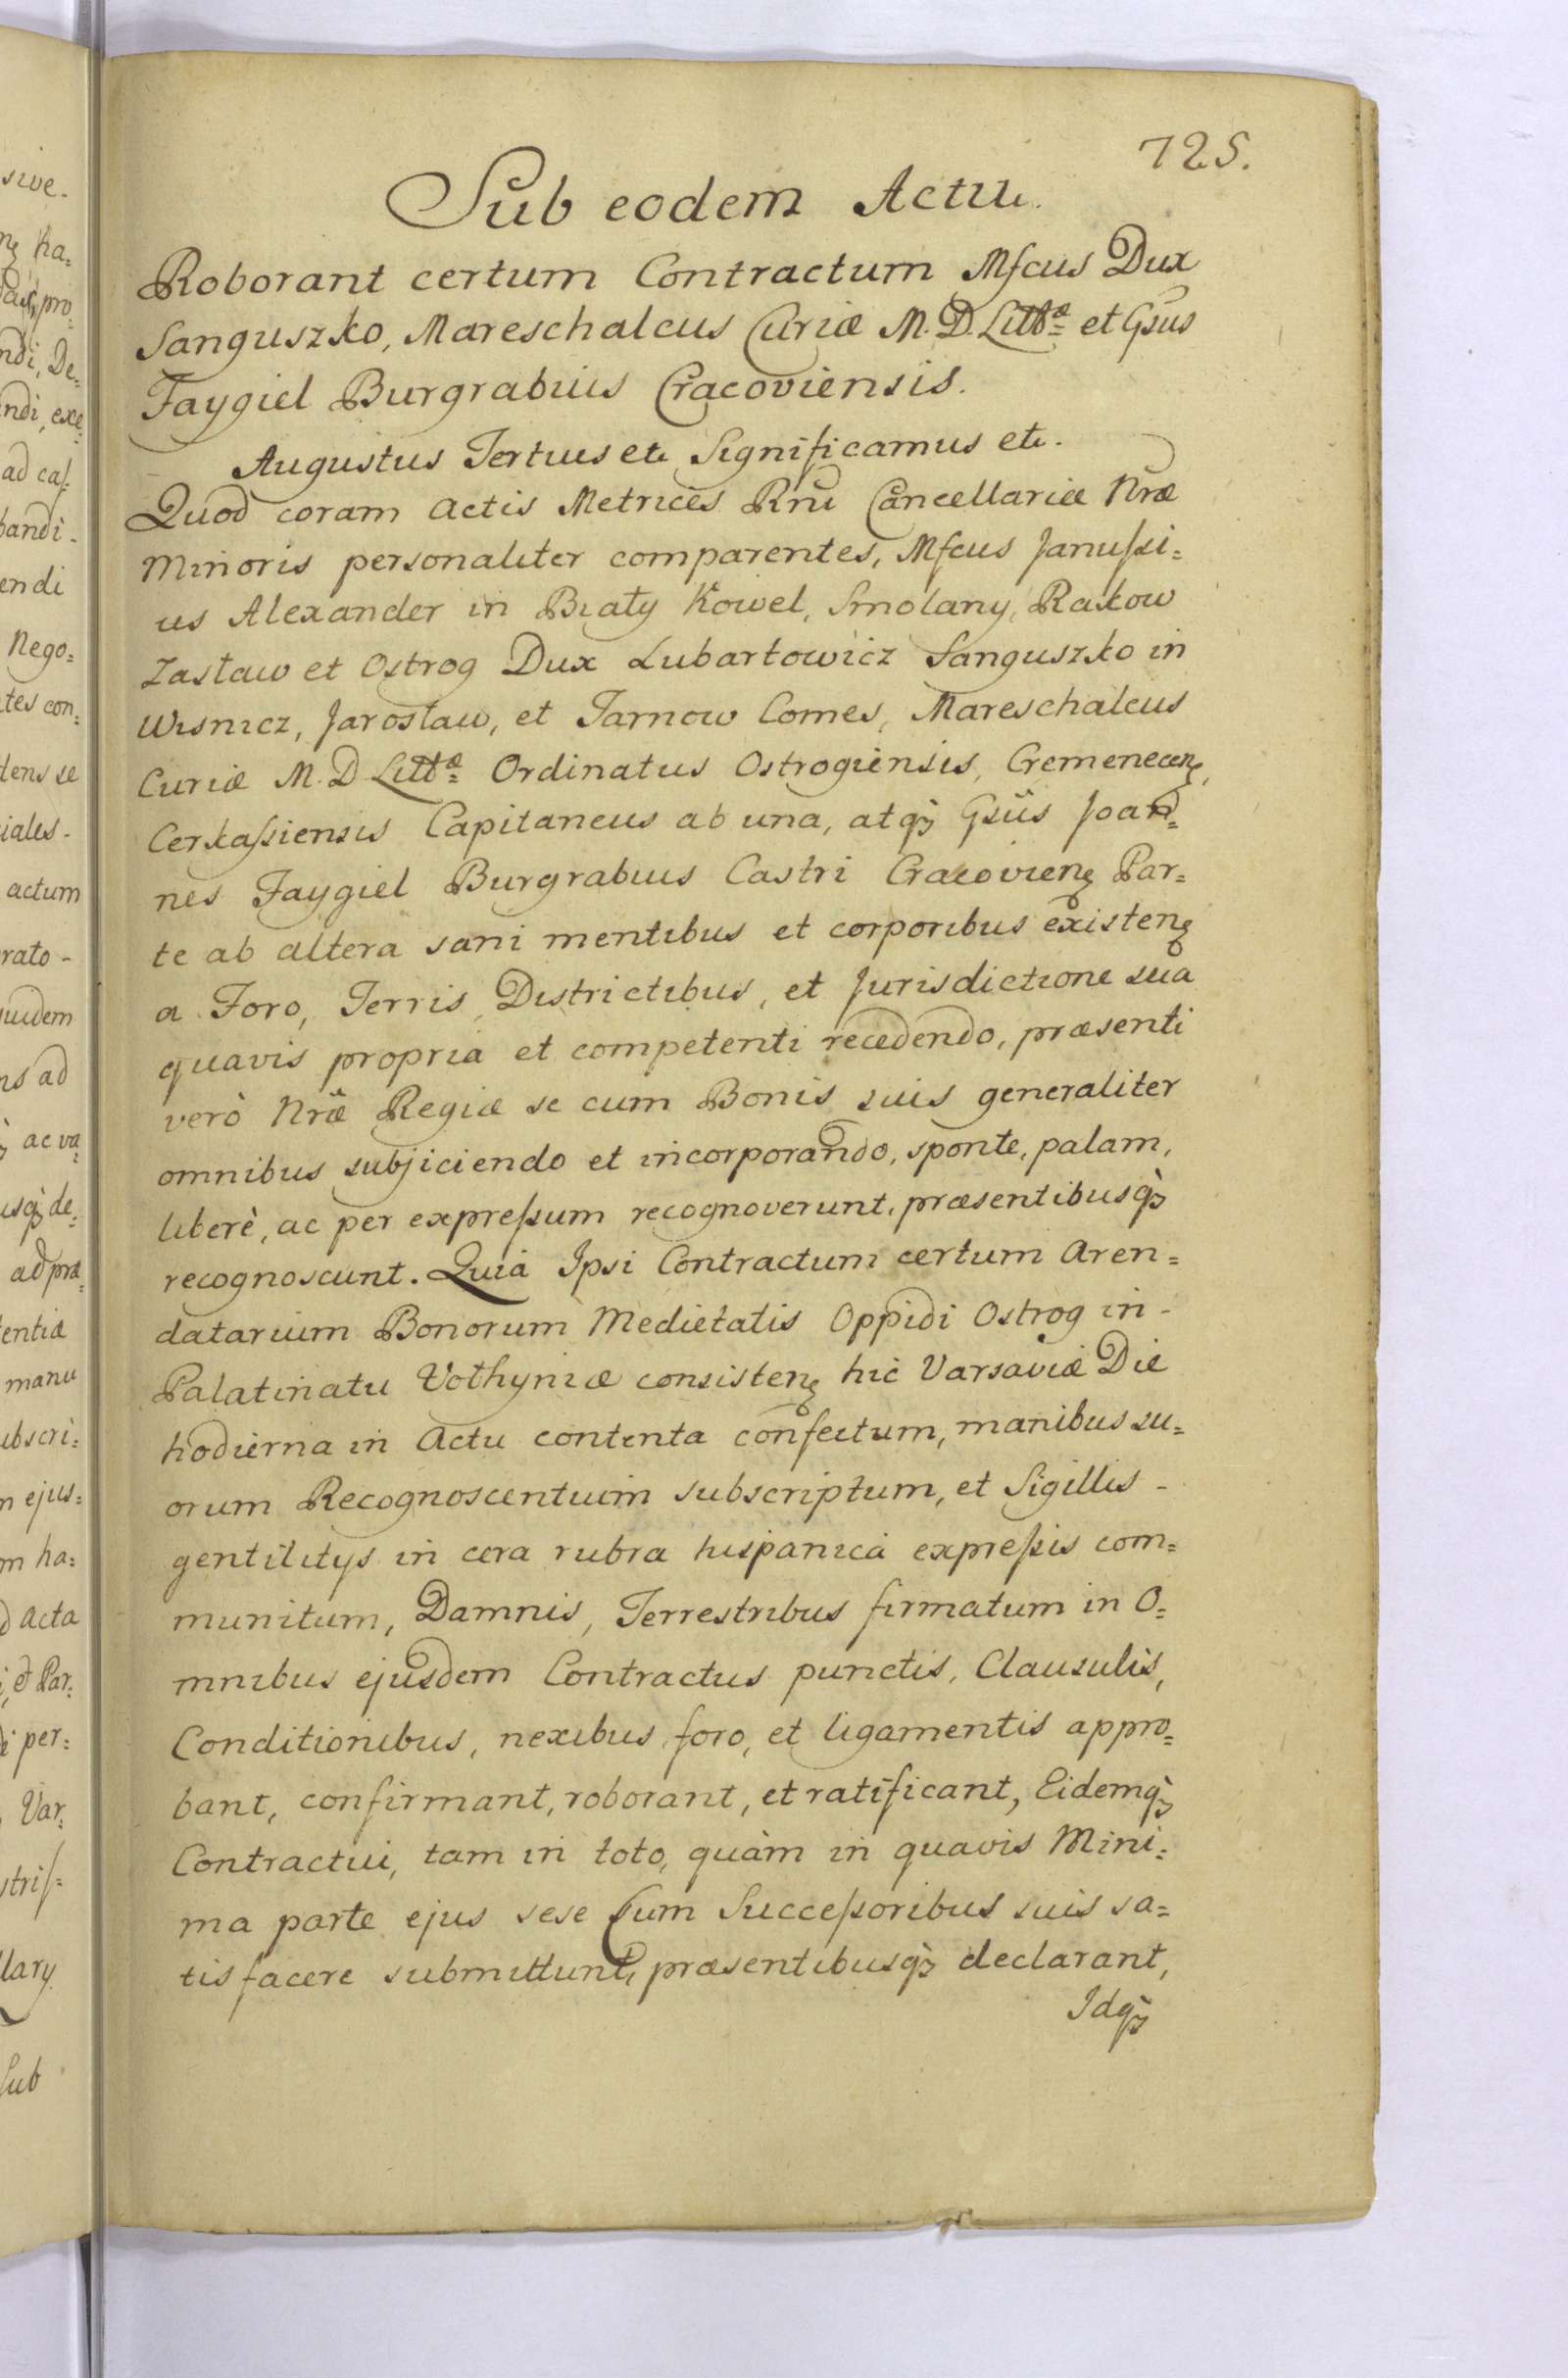 725.
Sub eodem Actu.
Roborant certum Contractum Mfcus Dux
Sanguszko, Mareschalcus Curiæ M. D. Littæ et Gsus
Faygiel Burgrabius Cracoviensis.
Augustus Tertius etc Significamus etc.
Quod coram Actis Metrices Rni Cancellariæ Nræ
Minoris personaliter comparentes, Mfcus Janußi=
us Alexander in Biały Kowel, Smolany, Rakow
Zasław et Ostrog Dux Lubartowicz Sanguszko in
Wisnicz, Jarosław, et Tarnow Comes, Mareschalcus
Curiæ M. D Littæ Ordinatus Ostrogiensis, Cremenecen,
Cerkaßiensis Capitaneus ab una, atq̀ꝫ Gsus Joan=
nes Faygiel Burgrabius Castri Cracovien Par=
te ab altera sani mentibus et corporibus existen
a Foro, Terris, Districtibus, et Jurisdictione sua
quavis propria et competenti recedendo, præsenti
verò Nræ Regiæ se cum Bonis suis generaliter
omnibus subjiciendo et incorporando, sponte, palam,
liberè, ac per expreßum recognoverunt, præsentibusq̀ꝫ
recognoscunt. Quia Ipsi Contractum certum Aren=
datarium Bonorum Medietatis Oppidi Ostrog in -
Palatinatu Volhyniæ consisten hic Varsaviæ Die
hodierna in Actu contenta confectum, manibus su=
orum Recognoscentium subscriptum, et Sigillis -
gentilitys in cera rubra hispanica expreßis com=
munitum, Damnis, Terrestribus firmatum in O=
mnibus ejusdem Contractus punctis, Clausulis,
Conditionibus, nexibus, foro, et ligamentis appro=
bant, confirmant, roborant, et ratificant, Eidemq̀ꝫ
Contractui, tam in toto, quàm in quavis Mini=
ma parte ejus sese Cum Succeßoribus suis sa=
tisfacere submittunt, præsentibusq̀ꝫ declarant,
Idq̀ꝫ